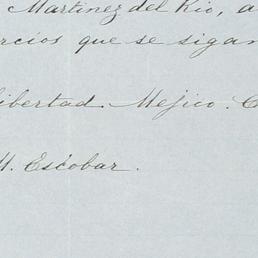 Martinez del Rio, a
rcios que se sigan
libertad. Mejico.
M. Escobar.